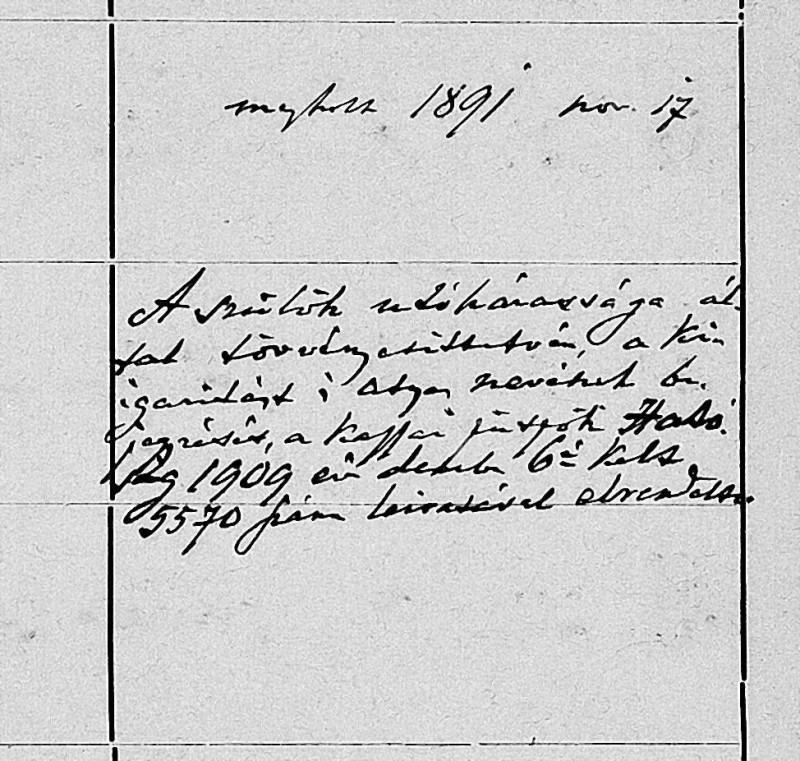 megholt 1891 nov. 17
A szülők utóházassága ál-
tal törvényesittetvén, a ki-
igazitást s atya nevének be-
jegyzését, a kassai püspöki Ható-
ság 1909 évi decemb. 6án kelt
5570 számu leiratával elrendelte.